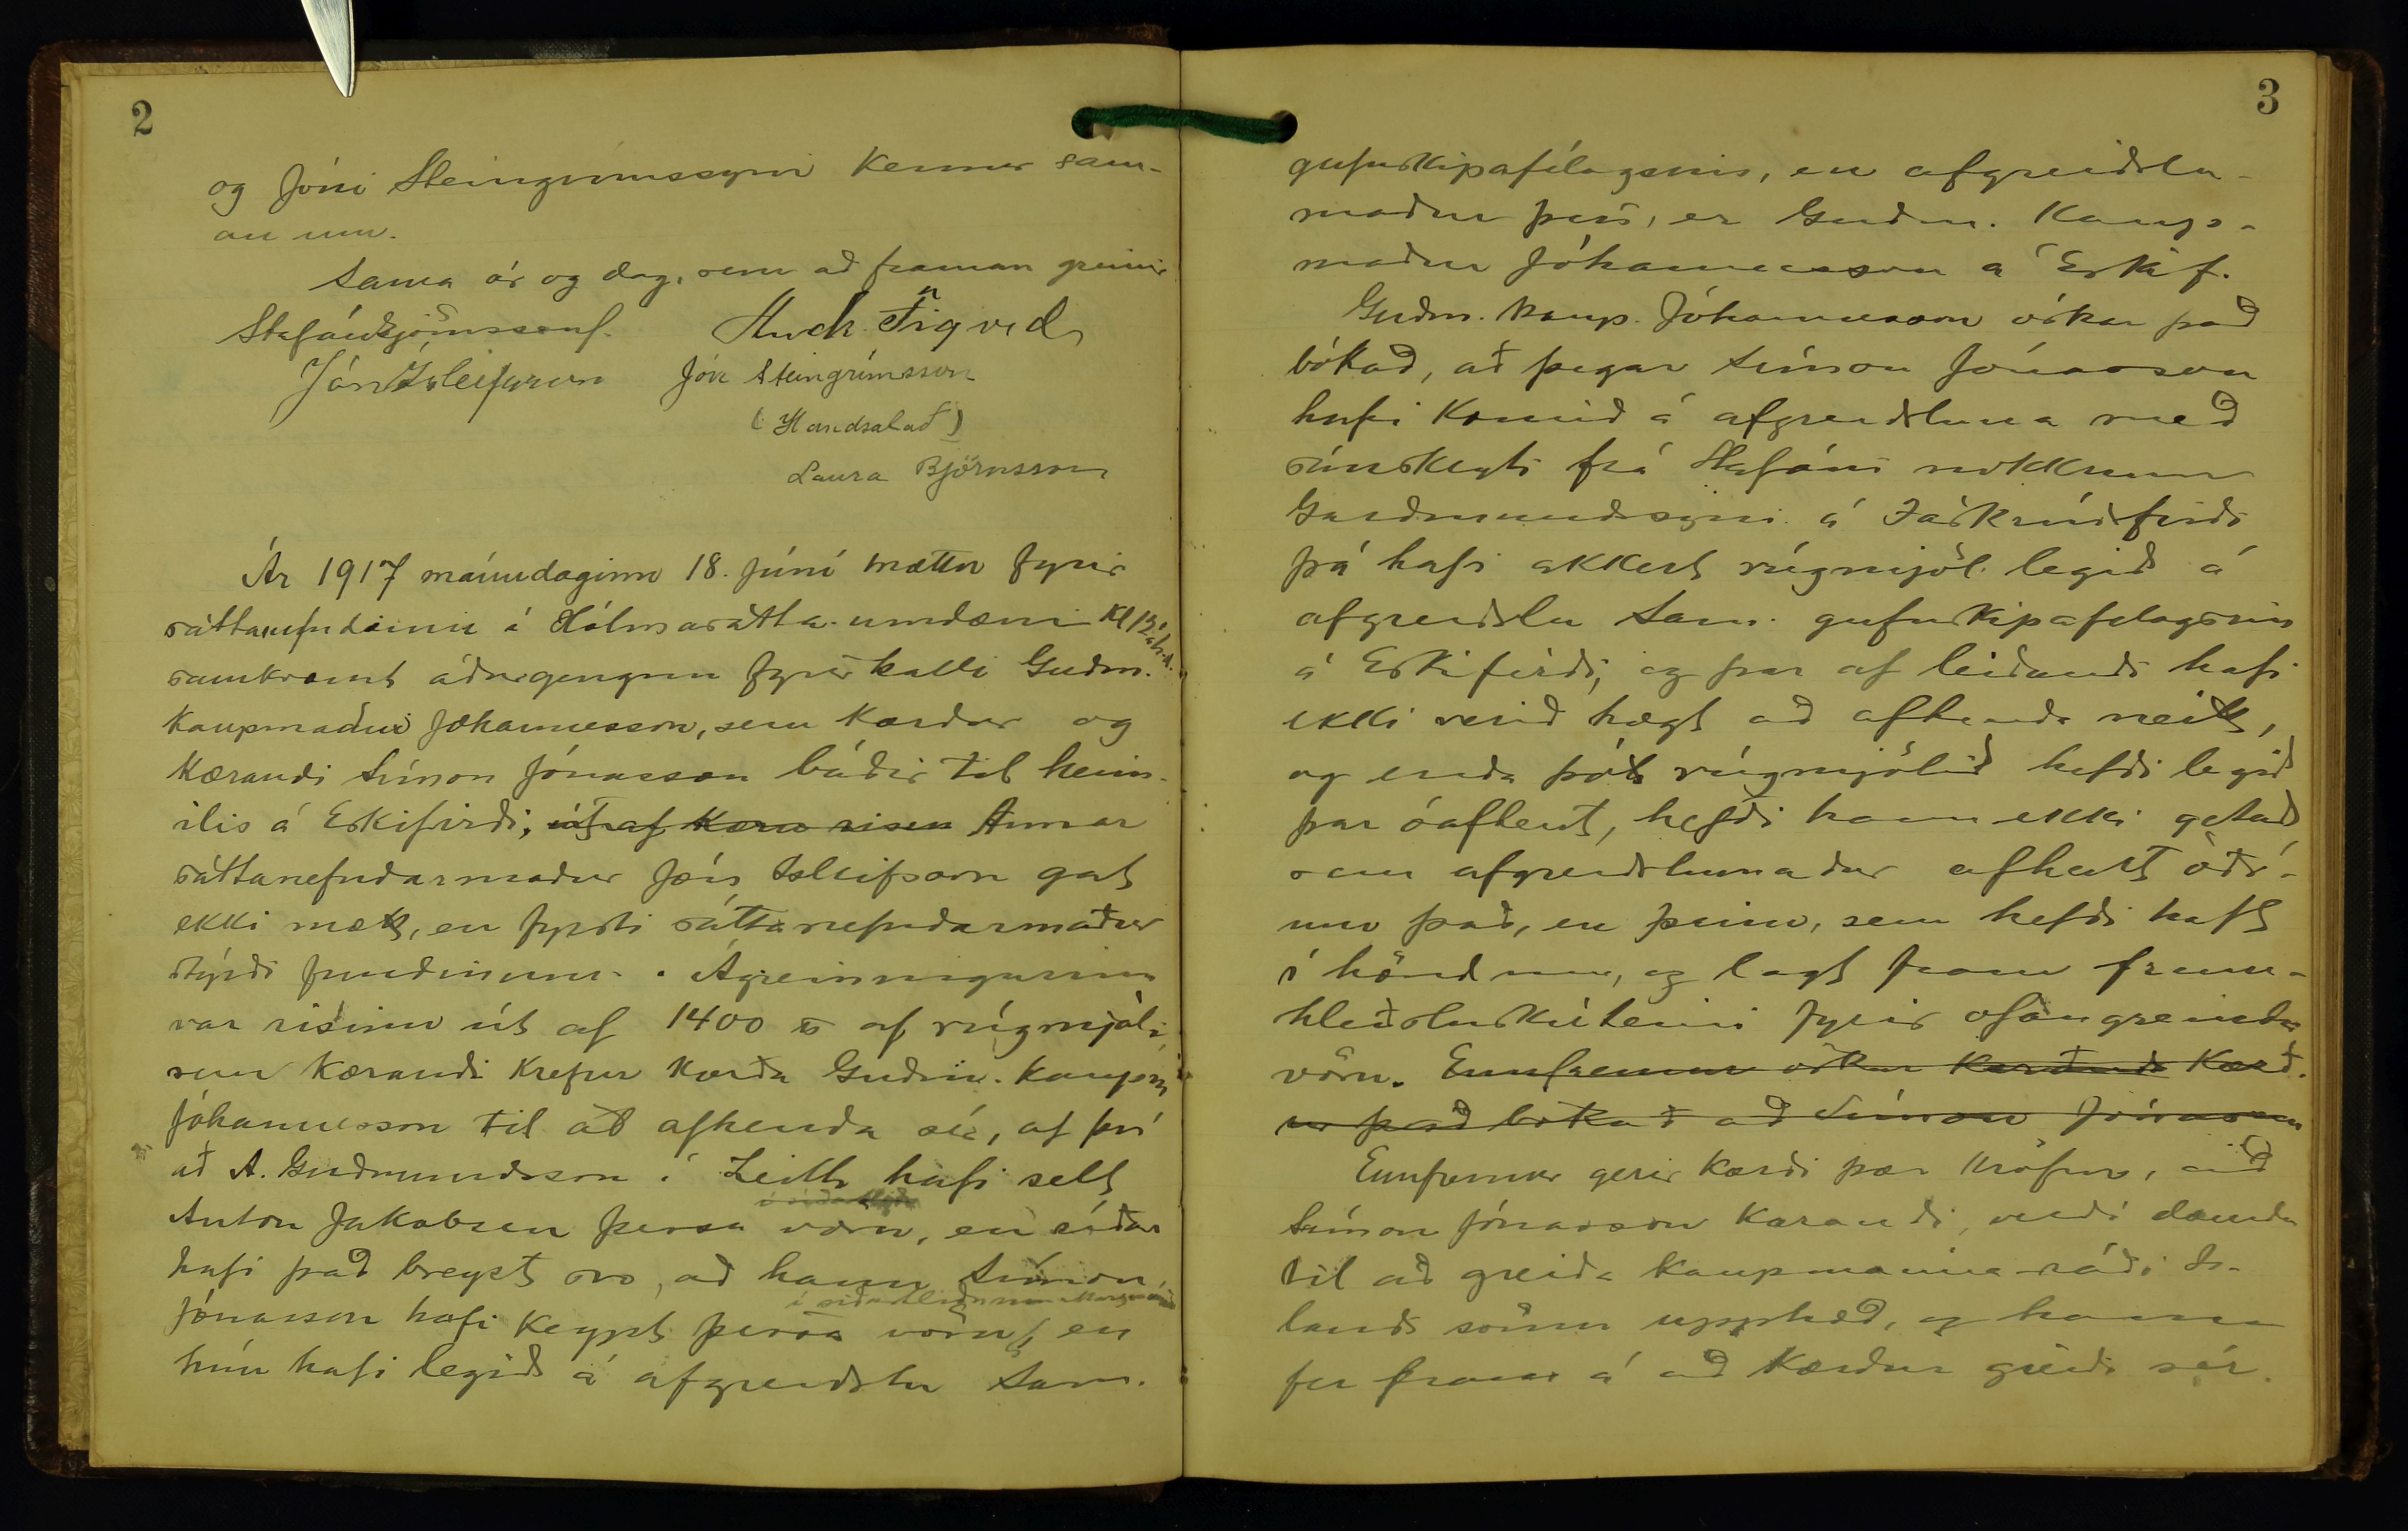 2
og Jóni Steingrímssyni kemur sam-
an um.
Sama ár og dag, sem að framan greinir
Stefán Björnsson
Jón Ísleifsson
Jón Steingrímsson
(Handsalað)
Laura Björnsson
Ár 1917 mánudaginn 18. júní mættu fyrir
sáttanefndinni í Hólmasátta-umdæmi Kl 12 á h.
samkvæmt áðurgengnu fyrirkalli Guðm.
kaupmaður Jóhannesson, sem kærður og
kærandi Símon Jónasson báðir til heim-
ilis á Eskifirði, út af kæru risen Annar
sáttanefndarmaður Jón Ísleifsson gat
ekki mætt, en fyrsti sáttanefndarmaður
stýrði fundinum. Ágreiningurinn
var risinn út af 1400 ℔ af rúgmjöli,
sem kærandi krefur kærða Guðm. kaupm
Jóhannesson til að afhenda sér, af því
að A. Guðmundsson í Leith hafi selt
Anton Jakobsen þessa vöru, en síðar
hafi það breyst svo, að hann Símon
í síðastliðnum
Jónasson hafi keypt þessa vöru, en
hún hafi legið á afgreiðslu Sam.
3
gufuskipafélagsins, en afgreiðslu-
maður þess, er Guðm. Kaup-
maður Jóhannesson á Eskif.
Guðm. kaup. Jóhannesson óskar það
bókað, að þegar Símon Jónasson
hafi komið á afgreiðsluna með
símskeyti frá Stefáni nokkrum
Guðmundssyni á Fáskrúðsfirði
þá hafi ekkert rúgmjöl legið á
afgreiðslu Sam. gufuskipafelagsins
á Eskifirði, og þar af leiðandi hafi
ekki verið hægt að afhenda neitt,
og enda þótt rúgmjölið hefði legið
þar óafhent, hefði hann ekki getað
sem afgreiðslumaður afhent öðr-
um það, en þeim, sem hefði haft
í höndum, og lagt fram farm-
hleðsluskírteini fyrir ofangreinda
vöru. Ennfremur óskar kærð.
ur það bókað að Símon Jónasson
Ennfremur gerir kærði þær kröfur, að
Símon Jónasson kærandi, verði dæmdur
til að greiða kaupmanna-ráði Ís-
lands sömu upphæð, og hann
fer fram á að kærður greiði sér.